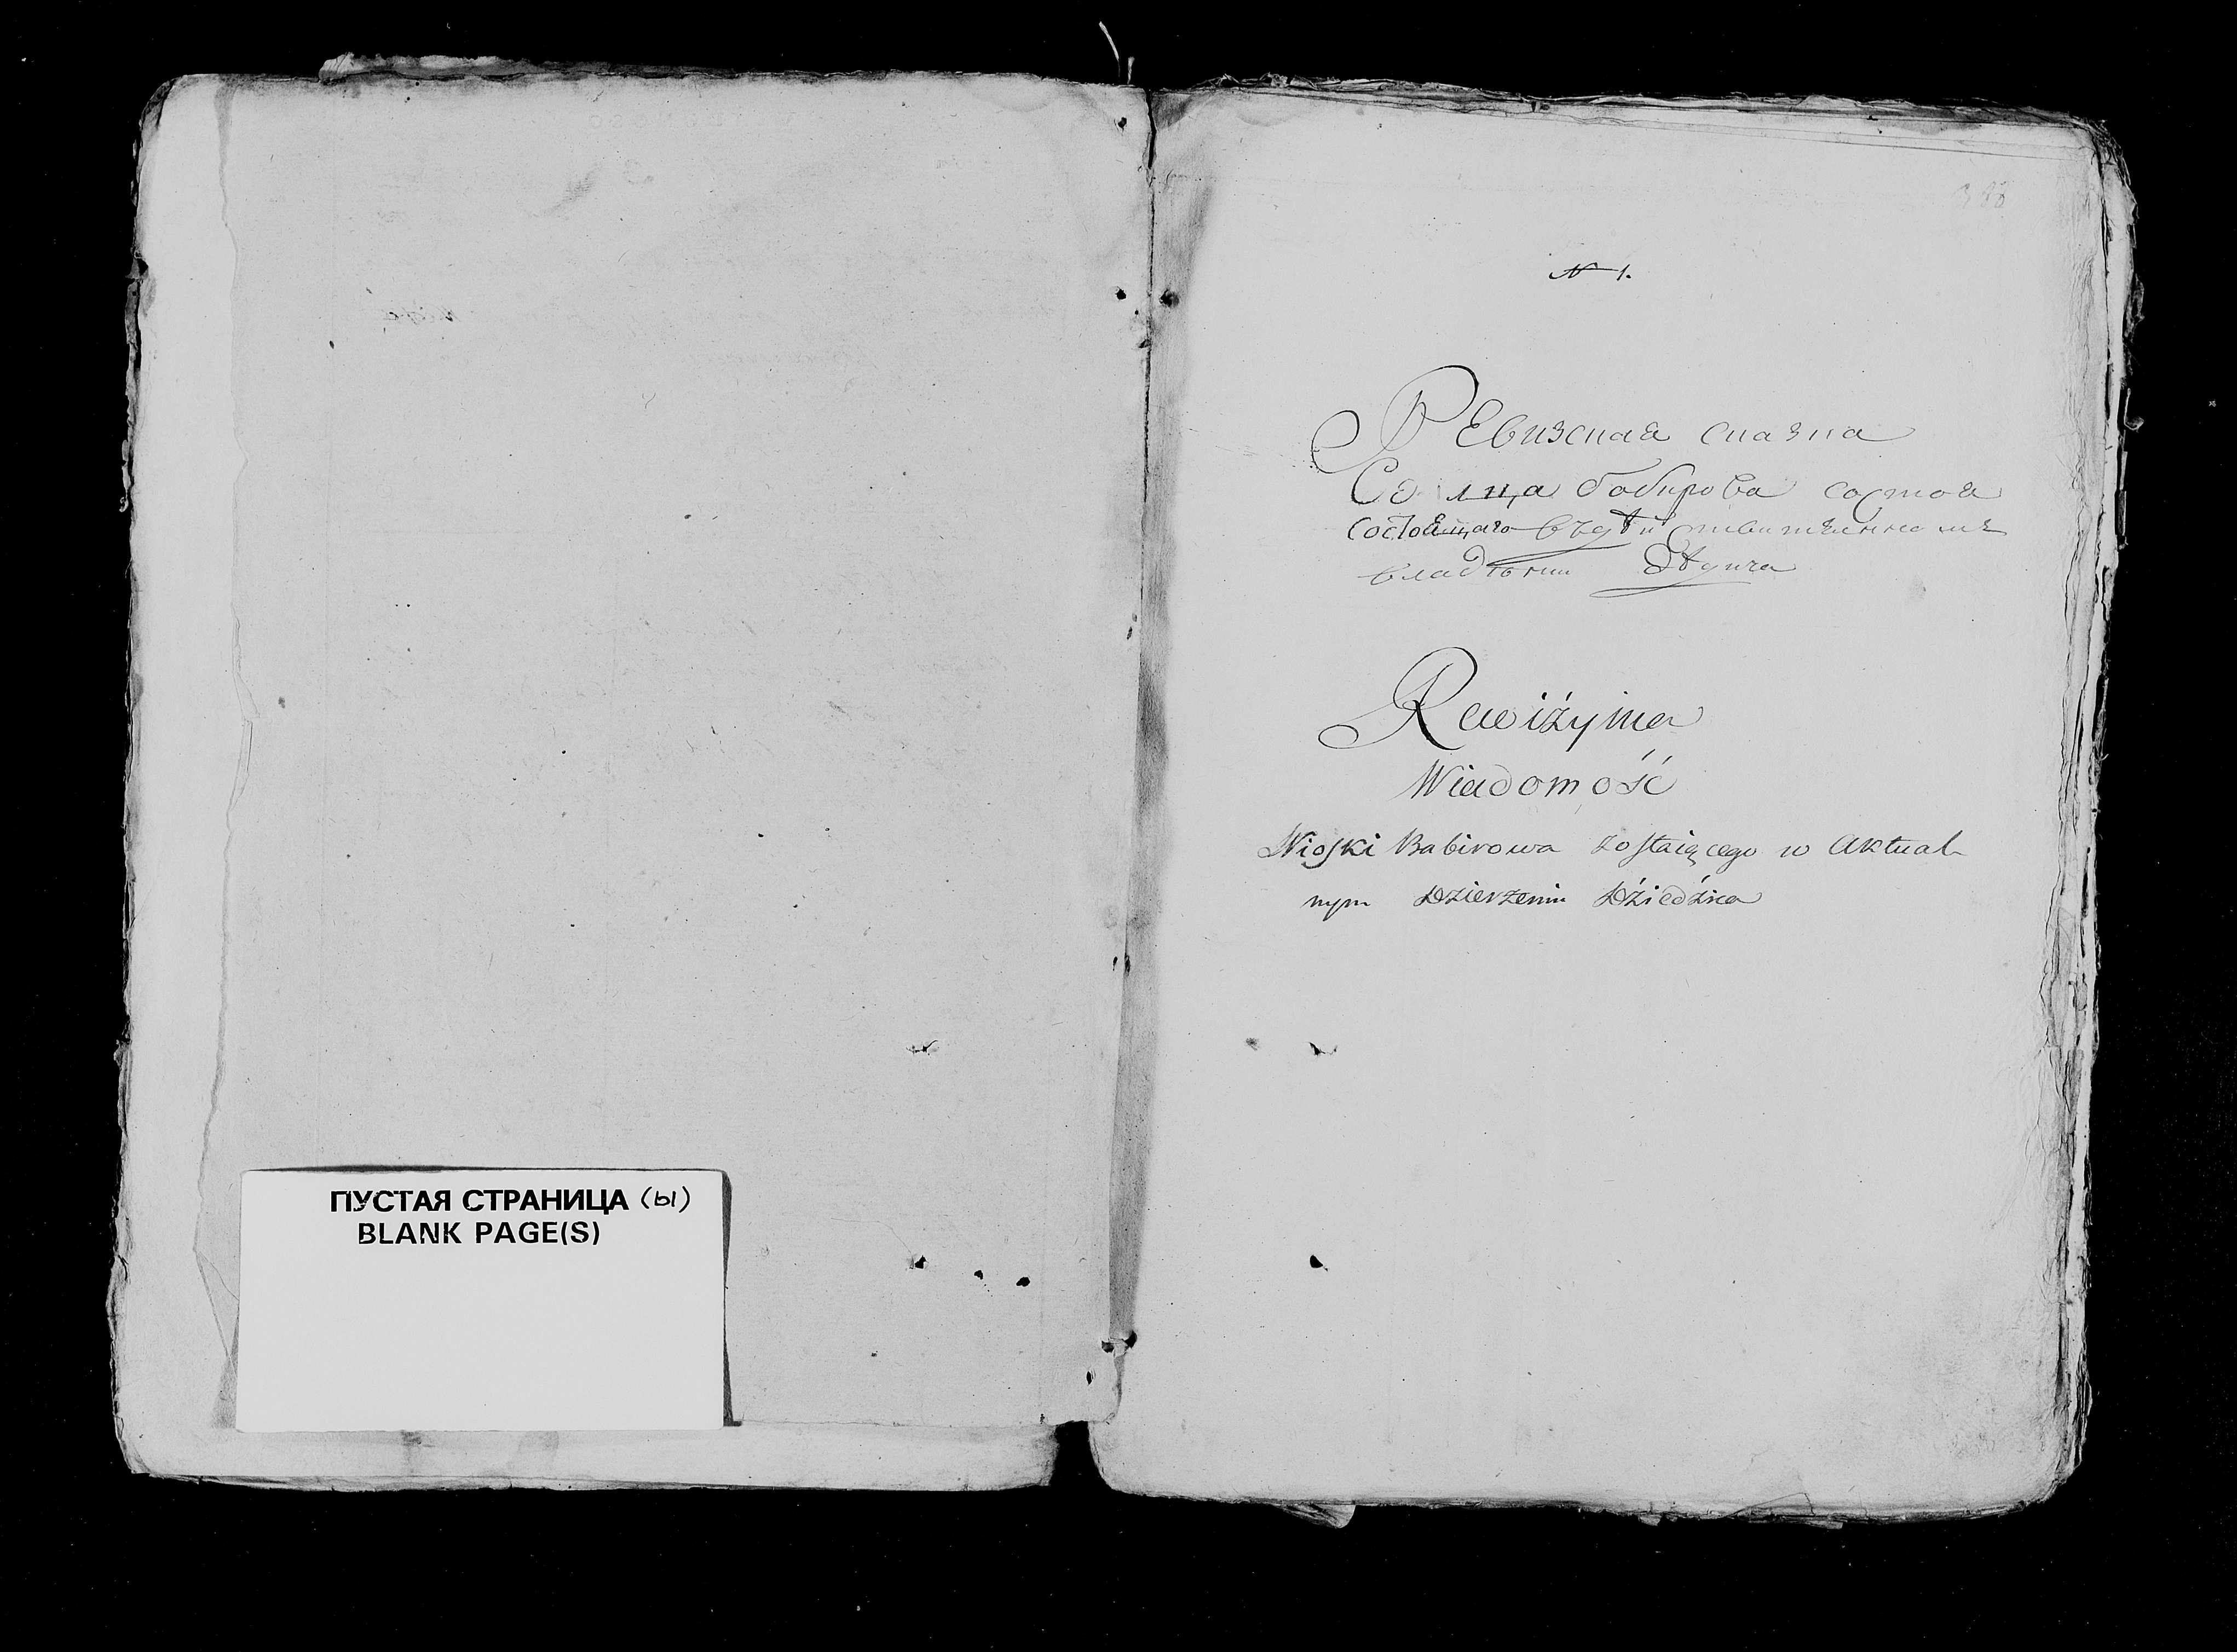 ПУСТАЯ СТРАНИЦА (ы)
BLANK PAGE(S)
№ 1.
Ревизская сказка
Сельца бабирова состоя
состоящаго въ действительномъ
владѣнии Дѣдича
Rewiżyina
Wiadomość
Wioski Babirowa zostaiącego w Aktual-
nym Dzierzeniu Dźiedźica